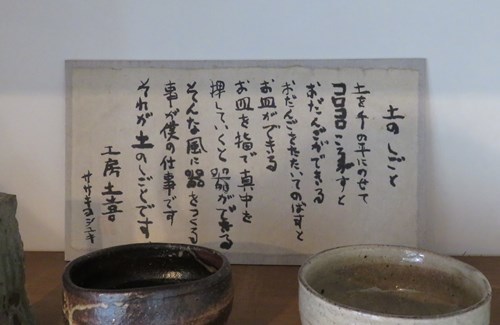 土のしごと
土を手の平にのせて
コロコロころがすと
おだんごができる
おだんごをたたいてのばすと
お皿ができる
お皿を指で真中を
押していくと器ができる
そんな風に器をつくる
事が僕の仕事です
それが土のしごとです
工房 土音
ササキマシュキ